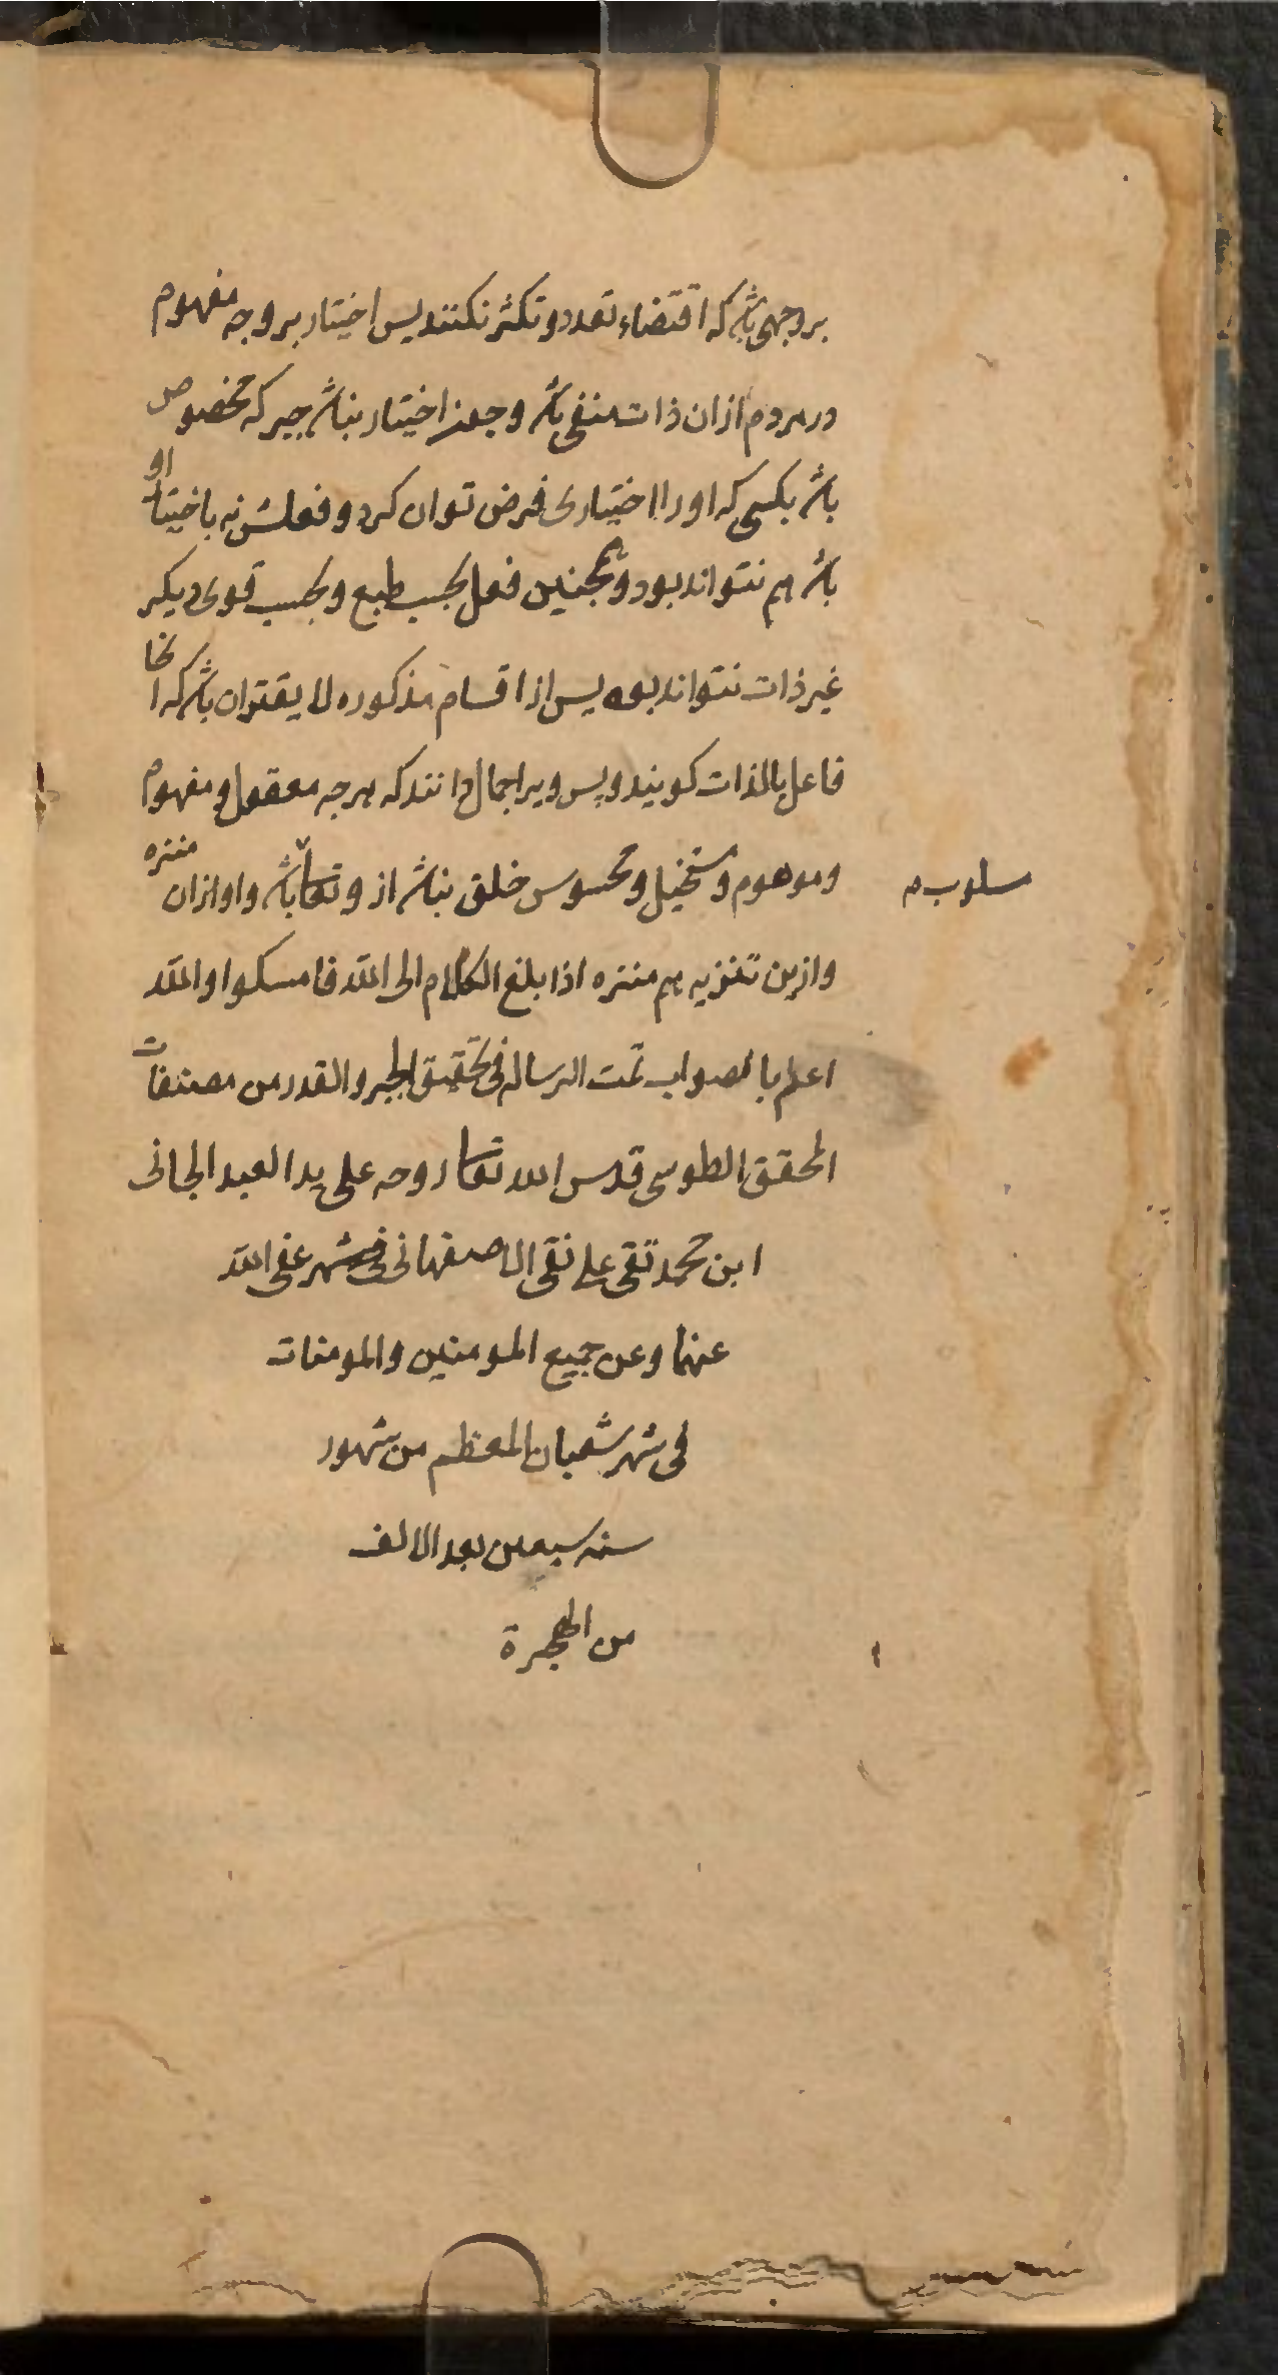 بر وجهی باشد که اقتضاء تعدد و تکثر نکنند پس اختیار بر وجه مفهوم
در مردم ازان ذات منفی باشد و جز اختیار نباشد جبر که مخصوص
باشد بکسی که او را اختیاری فرض توان کرد و فعلش نه باختیار او
باشد هم نتواند بود و همچنین فعل بحسب طبع و بحسب قوی دیکر
غیر ذات نتواند بود پس از اقسام مذکوره لا یقتران باشد که انجا
فاعل بالذات کویند و پس ویرا جمال دانند که هر چه معقول و مفهوم
و موهوم و متخیل و محسوس خلق باشد ازو تعالی باشد و او ازان منزه
مسلوب م
و ازین تنزیه هم منزه اذا بلغ الکلام الی الله فامسکوا والله
اعلم بالصواب تمت الرساله فی تحقیق الجبر والقدر من مصنفات
المحقق الطوسی قدس الله تعالی روحه علی ید العبد الجانی
ابن محمد تقی علی نقی الاصفهانی فی شهر عفی الله
عنهما وعن جمیع المومنین والمومنات
فی شهر شعبان المعظم من شهور
سنه سبعین بعد الالف
من الهجرة